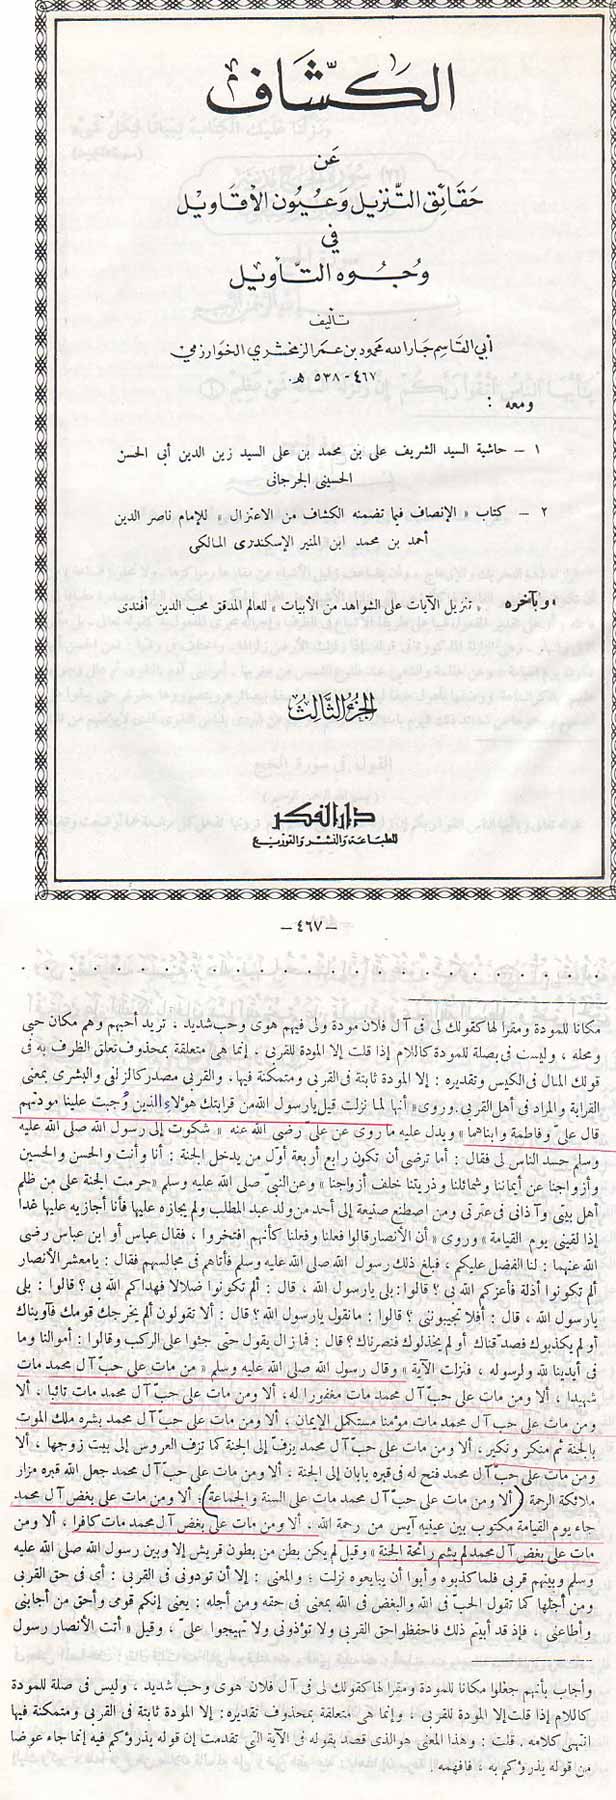 الكشاف
عن
حقائق التنزيل وعيون الأقاويل
في
وجوه التأويل
تأليف
أبي القاسم جار الله محمود بن عمر الزمخشري الخوارزمي
٤٦٧ - ٥٣٨ هـ
ومعه :
١ - حاشية السيد الشريف على بن محمد بن على السيد زين الدين أبى الحسن
الحسينى الجرجانى
٢ - كتاب « الإنصاف فيما تضمنه الكشاف من الاعتزال » للإمام ناصر الدين
أحمد بن محمد ابن المنير الإسكندرى المالكى
وبآخره « تنزيل الآيات على الشواهد من الأبيات » للعالم المدقق محب الدين أفندى
الجزء الثالث
دار الفكر
للطباعة والنشر والتوزيع
— ٤٦٧ —
مكانا للمودة ومقرا لها كقولك لى فى آل فلان مودة ولى فيهم هوى وحب شديد ، تريد أحبهم وهم مكان حبى
ومحله ، وليست فى بصلة للمودة كاللام إذا قلت إلا المودة للقربى ، إنما هى متعلقة بمحذوف تعلق الظرف به فى
قولك المال فى الكيس وتقديره : إلا المودة ثابتة فى القربى ومتمكنة فيها . والقربى مصدر كالزلفى والبشرى بمعنى
القرابة والمراد فى أهل القربى . وروى « أنها لما نزلت قيل يارسول الله من قرابتك هؤلاء الذين وجبت علينا مودتهم
قال علىّ وفاطمة وابناهما » ويدل عليه ما روى عن علىّ رضى الله عنه « شكوت إلى رسول الله صلى الله عليه
وسلم حسد الناس لى فقال : أما ترضى أن تكون رابع أربعة أول من يدخل الجنة : أنا وأنت والحسن والحسين
وأزواجنا عن أيماننا وشمائلنا وذريتنا خلف أزواجنا » وعن النبى صلى الله عليه وسلم « حرمت الجنة على من ظلم
أهل بيتى وآذانى فى عترتى ومن اصطنع صنيعة إلى أحد من ولد عبد المطلب ولم يجازه عليها فأنا أجازيه عليها غدا
إذا لقينى يوم القيامة » وروى « أن الأنصار قالوا فعلنا وفعلنا كأنهم افتخروا ، فقال عباس أو ابن عباس رضى
الله عنهما : لنا الفضل عليكم ، فبلغ ذلك رسول الله صلى الله عليه وسلم فأتاهم فى مجالسهم فقال : يامعشر الأنصار
ألم تكونوا أذلة فأعزكم الله بى ؟ قالوا : بلى يارسول الله ، قال : ألم تكونوا ضلالا فهداكم الله بى ؟ قالوا : بلى
يارسول الله ، قال : أفلا تجيبوننى ؟ قالوا : مانقول يارسول الله ؟ قال : ألا تقولون ألم يخرجك قومك فآويناك
أو لم يكذبوك فصدقناك أو لم يخذلوك فنصرناك ؟ قال : فما زال يقول حتى جثوا على الركب وقالوا : أموالنا وما
فى أيدينا لله ولرسوله ، فنزلت الآية » وقال رسول الله صلى الله عليه وسلم « من مات على حبّ آل محمد مات
شهيدا ، ألا ومن مات على حبّ آل محمد مات مغفورا له ، ألا ومن مات على حبّ آل محمد مات تائبا ، ألا
ومن مات على حب آل محمد مات مؤمنا مستكمل الإيمان ، ألا ومن مات على حبّ آل محمد بشره ملك الموت
بالجنة ثم منكر ونكير ، ألا ومن مات على حبّ آل محمد يزفّ إلى الجنة كما تزف العروس إلى بيت زوجها ، ألا
ومن مات على حبّ آل محمد فتح له فى قبره بابان إلى الجنة ، ألا ومن مات على حبّ آل محمد جعل الله قبره مزار
ملائكة الرحمة ( ألا ومن مات على حبّ آل محمد مات على السنة والجماعة ) ، ألا ومن مات على بغض آل محمد
جاء يوم القيامة مكتوب بين عينيه آيس من رحمة الله ، ألا ومن مات على بغض آل محمد مات كافرا ، ألا ومن
مات على بغض آل محمد لم يشم رائحة الجنة » وقيل لم يكن بطن من بطون قريش إلا وبين رسول الله صلى الله عليه
وسلم وبينهم قربى فلما كذبوه وأبوا أن يبايعوه نزلت ؛ والمعنى : إلا أن تودونى فى القربى : أى فى حق القربى
ومن أجلها كما تقول الحبّ فى الله والبغض فى الله بمعنى فى حقه ومن أجله : يعنى إنكم قومى وأحق من أجابنى
وأطاعنى ، فإذ قد أبيتم ذلك فاحفظوا حق القربى ولا تؤذونى ولا تهيجوا علىّ ، وقيل « أتت الأنصار رسول
وأجاب بأنهم جعلوا مكانا للمودة ومقرا لها كقولك لى فى آل فلان هوى وحب شديد ، وليس فى صلة للمودة
كاللام إذا قلت إلا المودة للقربى ، وإنما هى متعلقة بمحذوف تقديره : إلا المودة ثابتة فى القربى ومتمكنة فيها
انتهى كلامه . قلت : وهذا المعنى هو الذى قصد بقوله فى الآية التى تقدمت إن قوله يذرؤكم فيه إنما جاء عوضا
من قوله يذرؤكم به ، فافهمه .